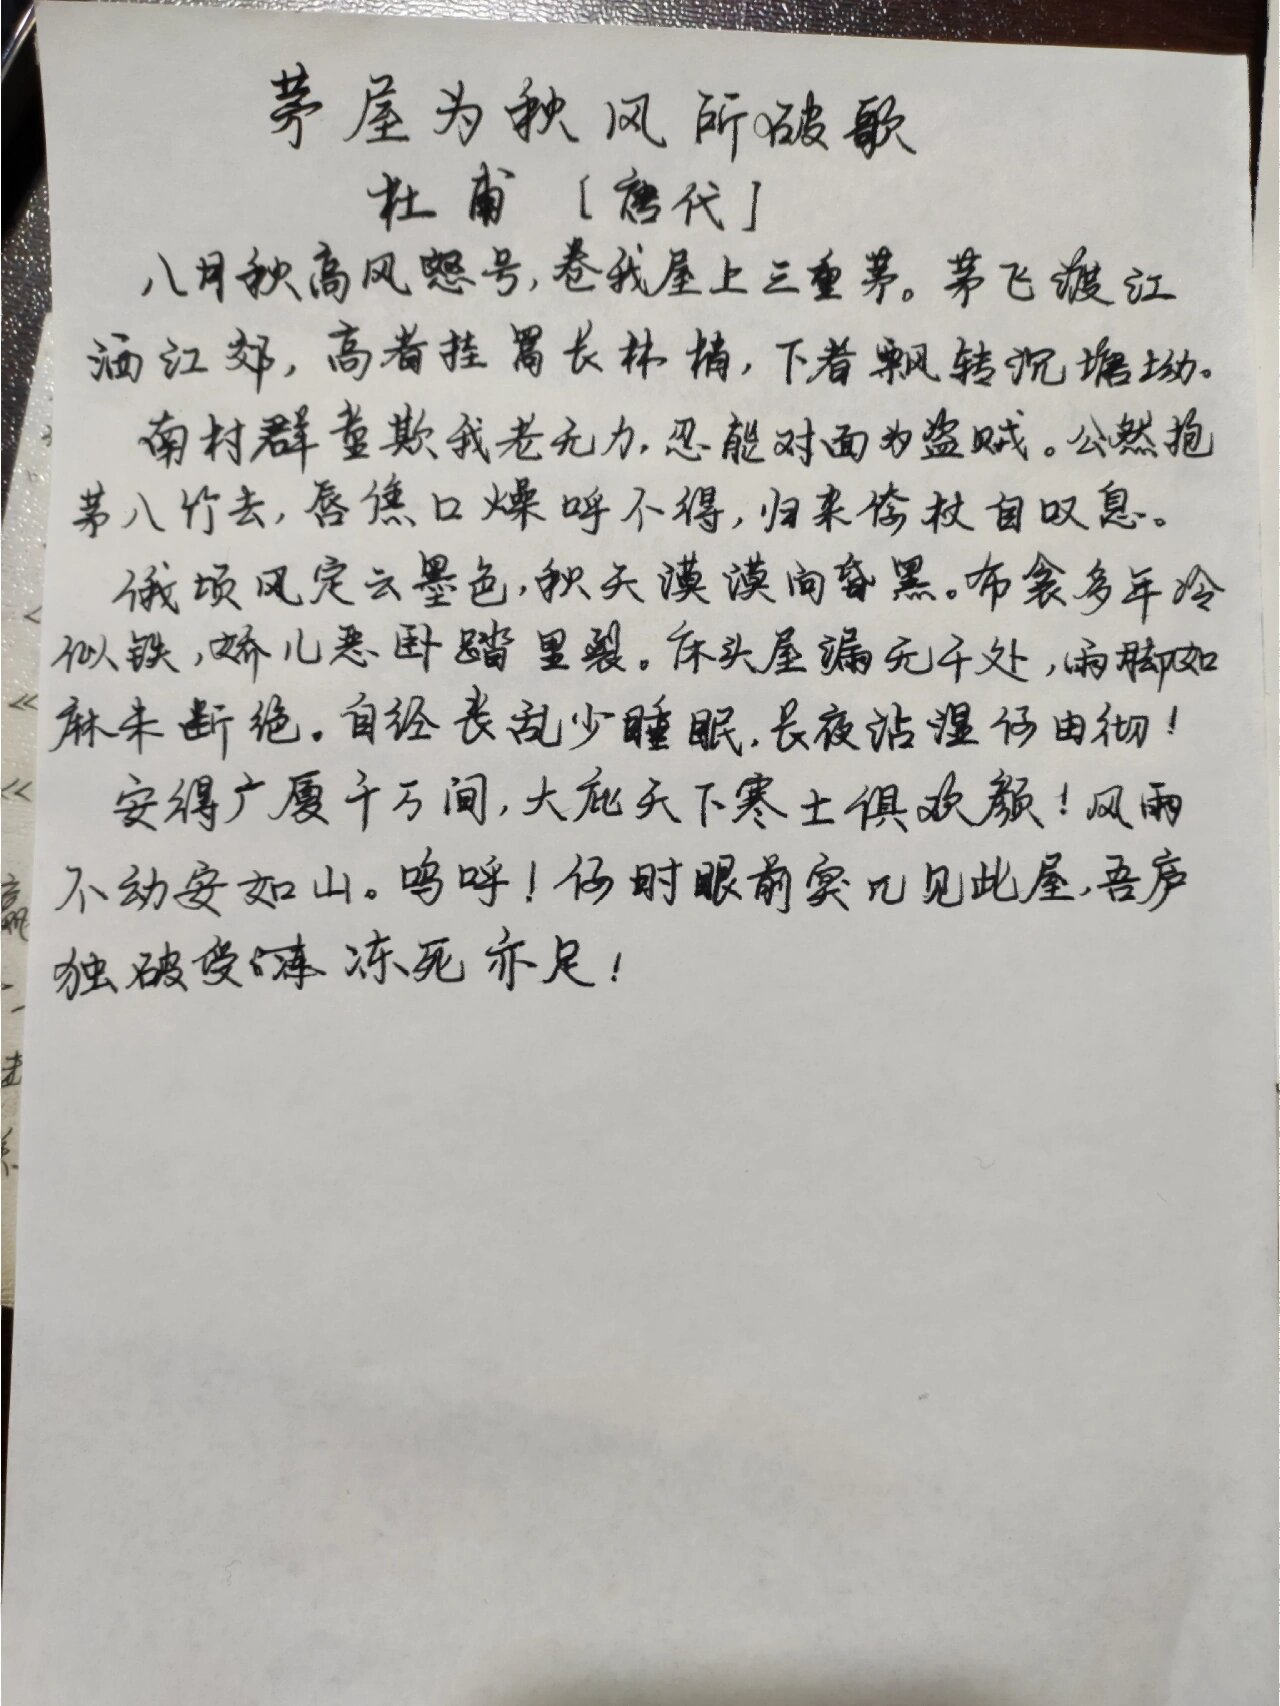 茅屋为秋风所破歌
杜甫［唐代］
八月秋高风怒号，卷我屋上三重茅。茅飞渡江
洒江郊，高者挂罥长林梢，下者飘转沉塘坳。
南村群童欺我老无力，忍能对面为盗贼。公然抱
茅入竹去，唇焦口燥呼不得，归来倚杖自叹息。
俄顷风定云墨色，秋天漠漠向昏黑。布衾多年冷
似铁，娇儿恶卧踏里裂。床头屋漏无干处，雨脚如
麻未断绝。自经丧乱少睡眠，长夜沾湿何由彻！
安得广厦千万间，大庇天下寒士俱欢颜！风雨
不动安如山。呜呼！何时眼前突兀见此屋，吾庐
独破受冻死亦足！